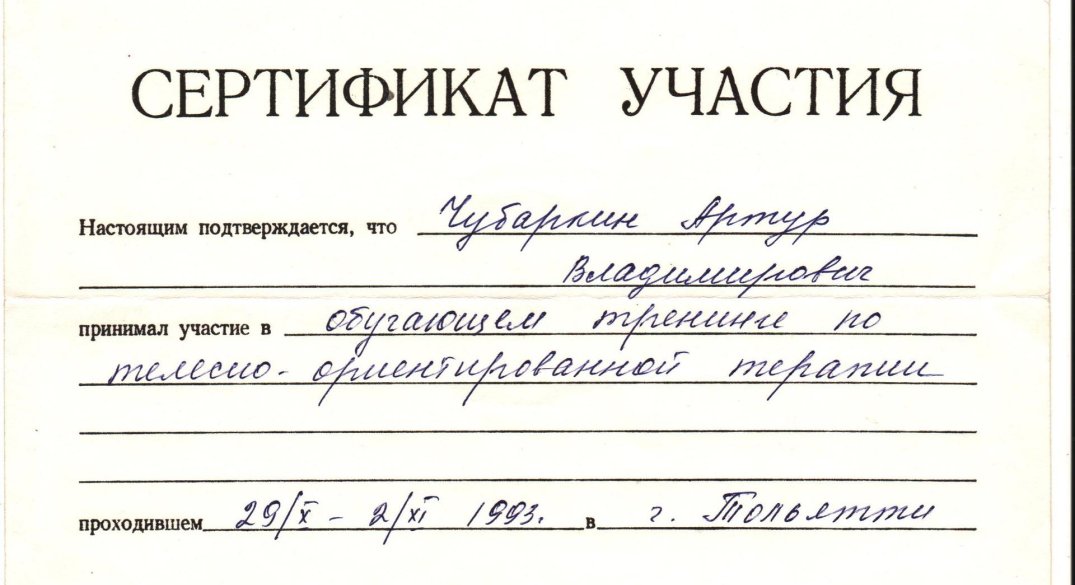 СЕРТИФИКАТ УЧАСТИЯ
Настоящим подтверждается, что Чубаркин Артур
Владимирович
принимал участие в обучающем тренинге по
телесно-ориентированной терапии
проходившем 29/X - 2/XI 1993. в г. Тольятти